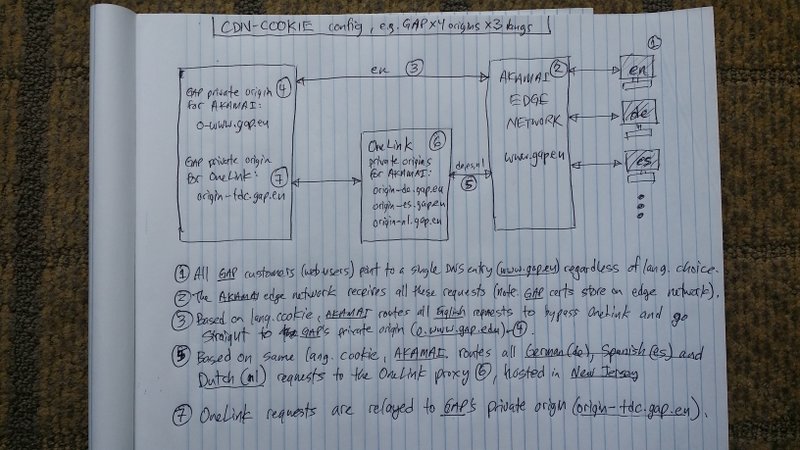 CDN-COOKIE config, e.g. GAP x4 origins x3 langs
①
en ③
GAP private origin ④
for AKAMAI:
o-www.gap.eu
GAP private origin
for OneLink: ⑦
origin-tdc.gap.eu
OneLink ⑥
private origins
for AKAMAI:
origin-de.gap.eu
origin-es.gap.eu
origin-nl.gap.eu
de,es,nl
⑤
AKAMAI ②
EDGE
NETWORK
www.gap.eu
en
de
es
① All GAP customers (web users) point to a single DNS entry (www.gap.eu) regardless of lang. choice.
② The AKAMAI edge network receives all these requests (note GAP certs store on edge network).
③ Based on lang. cookie, AKAMAI routes all English requests to bypass OneLink and go
straight to GAP's private origin (o.www.gap.edu) - ④.
⑤ Based on same lang. cookie, AKAMAI, routes all German (de), Spanish (es) and
Dutch (nl) requests to the OneLink proxy ⑥, hosted in New Jersey
⑦ OneLink requests are relayed to GAP's private origin (origin-tdc.gap.eu).